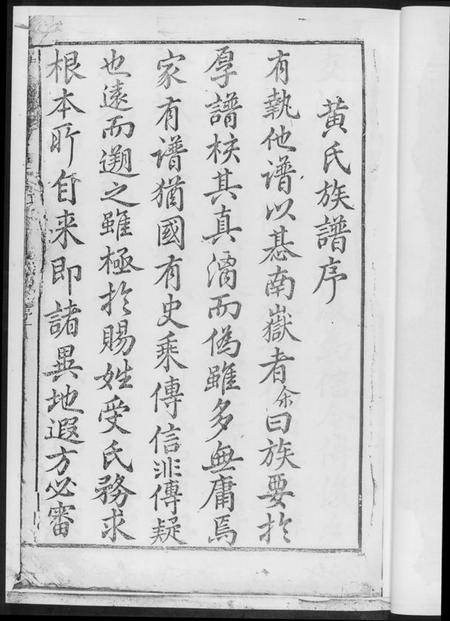 黃氏族譜序
有執他譜以惎南嶽者余曰族要扵
厚譜核其真濔而偽雖多無庸焉
家有譜猶國有史乘傳信非傳疑
也遠而遡之雖極扵賜姓受氏務求
根本所自来即諸異地遐方必審